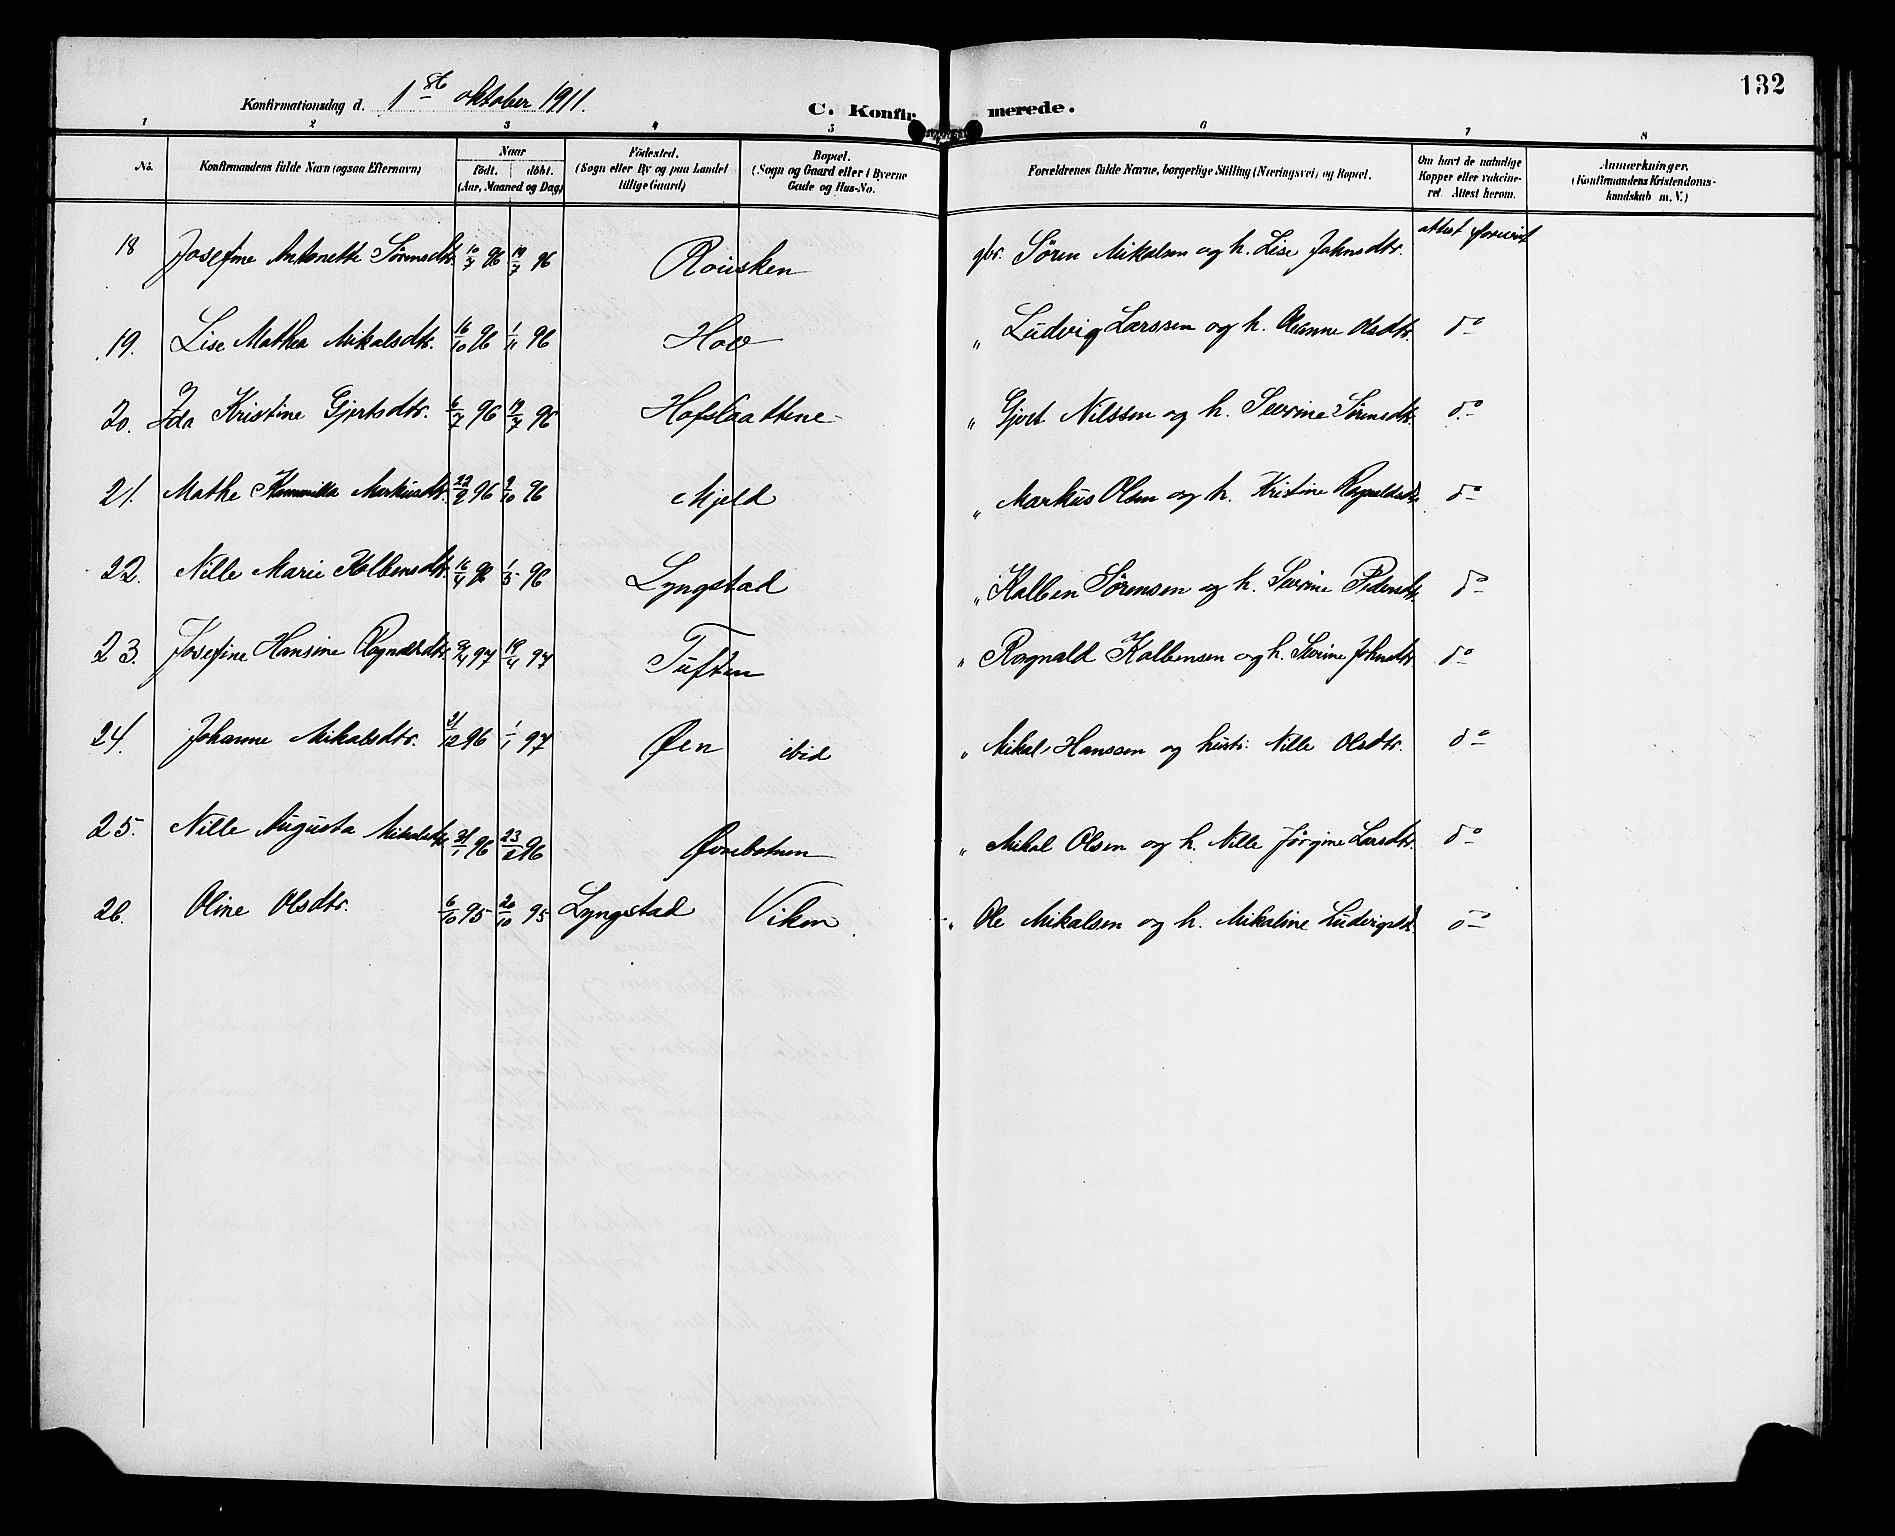 132
Konfirmationsdag d. 1ste oktober 1911.
C. Konfirmerede.
1 2 3 4 5 6 7 8
No. Konfirmandens fulde Navn (ogsaa Efternavn) Naar født. døbt. (Aar, Maaned og Dag) Fødested. (Sogn eller By og paa Landet tillige Gaard) Bopæl. (Sogn og Gaard eller i Byerne Gade og Hus-No. Forældrenes fulde Navne, borgerlige Stilling (Næringsvei) og Bopæl. Om havt de naturlige Kopper eller vakcineret Attest herom. Anmærkninger. (Konfirmandens Kristendomskundskab m. V.)
18 Josefine Antonette Sørensdtr. 10/7 96 19/7 96 gbr. Søren Mikalsen og h. Lise Johnsdtr. attest forevist
19. Lise Mathea Mikalsdtr. 16/10 96 1/11 96 Hov " Ludvig Larssen og h. Oleanne Olsdtr. do
20. Ida Kristine Gjertsdtr. 6/7 96 19/7 96 Hofslaattene " Gjert Nilssen og h. Severine Sørensdtr. do
21. Mathe Kammilla Markusdtr. 22/9 96 96 Mjeld " Markus Olsen og h. Kristine Ragnaldsdtr. do
22. Nille Marie Kolbensdtr. 16/4 96 1/5 96 Lyngstad " Kolben Sørensen og h. Severine Pedersdtr. do
23. Josefine Hansine Ragnaldsdtr. 9/4 97 19/4 97 Tuften " Ragnald Kolbensen og h. Severine Johnsdtr. do
24. Johanne Mikalsdtr. 21/12 96 1/1 97 Øen ibid " Mikal Hanssen og hustr. Nille Olsdtr. do
25. Nille Augusta Mikalsdtr. 31/1 96 23/2 96 Øvrebotnen " Mikal Olsen og h. Nille Jørgine Larsdtr. do
26. Oline Olsdtr. 6/10 95 20/10 95 Lyngstad Viken " Ole Mikalsen og h. Mikaline Ludvigsdtr. do